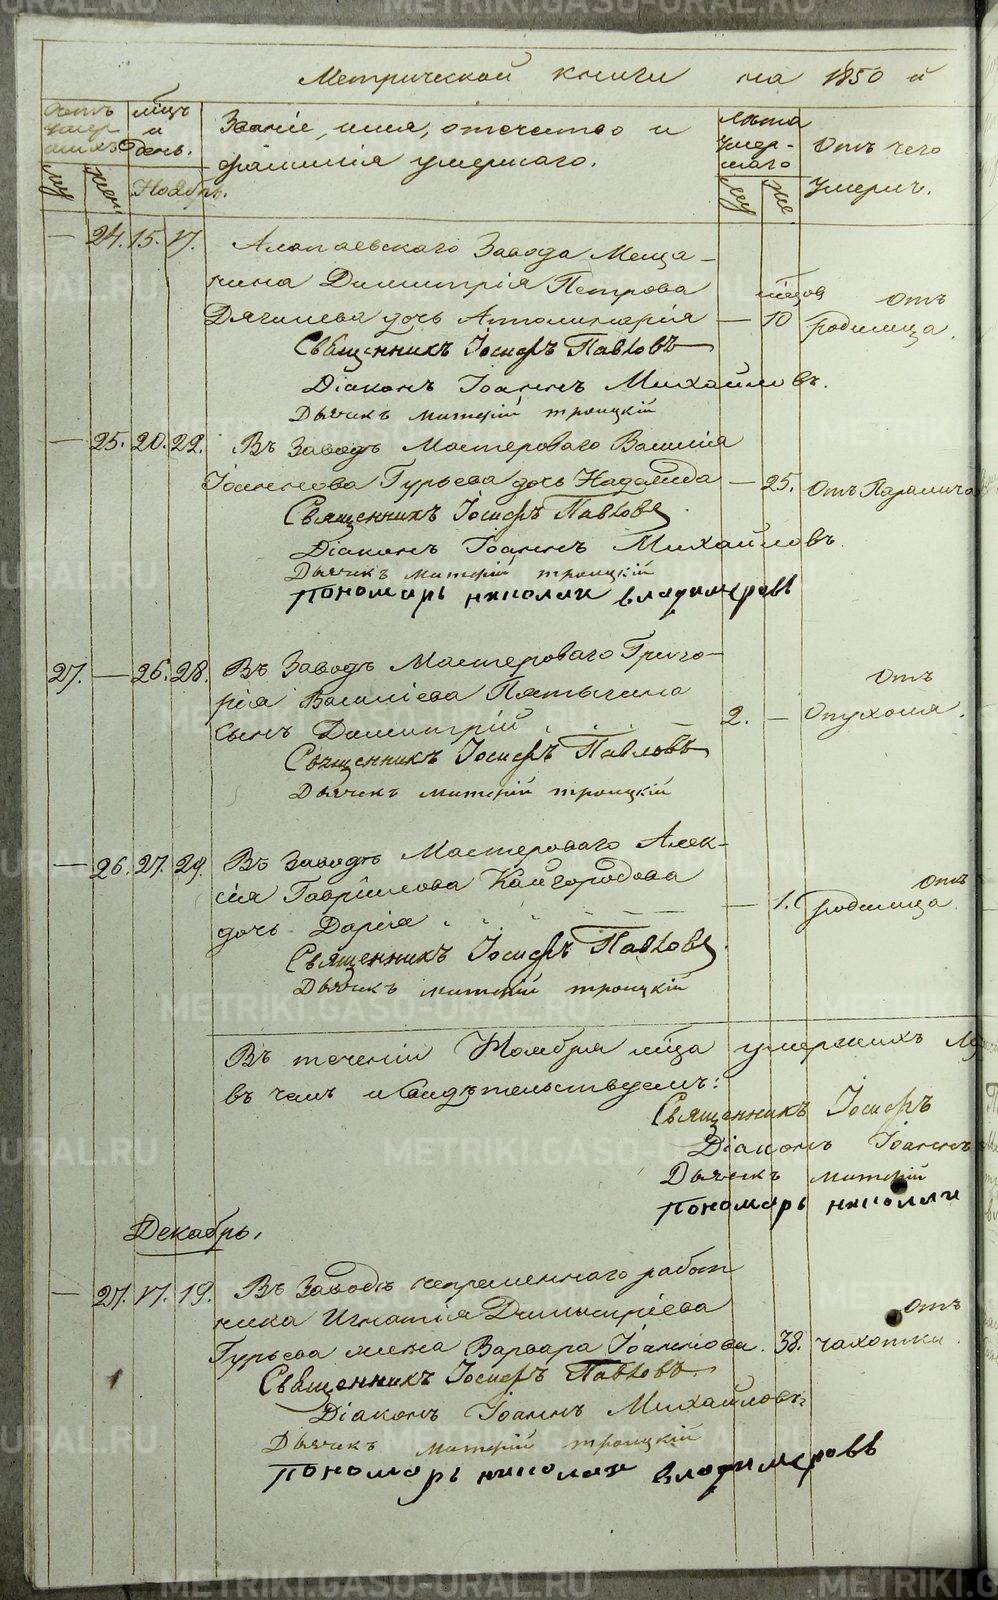 Метрической книги на 1850 й
Счетъ умер- шихъ
мѣсяцъ и день.
Званіе, имя, отечество и
фамилія умершаго.
Лѣта умер- шаго
Отъ чего
умеръ.
му жен. Ноябрь. му же
— 24. 15. 17. Алапаевскаго Завода Меща-
нина Димитрія Петрова
мѣсяцов Отъ
Дягилева дочь Апполинарія — 10 родимца.
Священникъ Іосифъ Павловъ
Діаконъ Іоаннъ Михайловъ.
Дьячекъ Матѳій Троицкій
— 25. 20. 22. Въ Заводѣ Мастероваго Василія
Іоаннова Гурьева дочь Надежда — 25. Отъ Паралича
Священникъ Іосифъ Павловъ
Діаконъ Іоаннъ Михайловъ
Дьячекъ Матѳій Троицкій
Пономарь Николаи Владимеровъ
27. — 26. 28. Въ Заводѣ Мастероваго Григо-
рія Василіева Пятыгина
Отъ
сынъ Димитрій 2. — Опухоли.
Священникъ Іосифъ Павловъ
Дьячекъ Матѳій Троицкій
— 26. 27. 29. Въ Заводѣ Мастероваго Алек-
сія Гавриилова Кайгородова
Отъ
дочь Дарія — 1. родимца.
Священникъ Іосифъ Павловъ
Дьячекъ Матѳій Троицкій
Въ теченіи Ноября мѣсяца умершихъ
въ чемъ и свидѣтельствуемъ:
Священникъ Іосифъ
Діаконъ Іоаннъ
Дьячекъ Матѳій
Пономарь Николаи
Декабрь.
— 27. 17. 19. Въ Заводѣ непременнаго работ
ника Игнатія Димитріева
Отъ
Гурьева жена Варвара Іоаннова. 38. чахотки.
Священникъ Іосифъ Павловъ
Діаконъ Іоаннъ Михайловъ
Дьячекъ Матѳій Троицкій
Пономарь Николаи Владимеровъ
METRIKI.GASO-URAL.RU